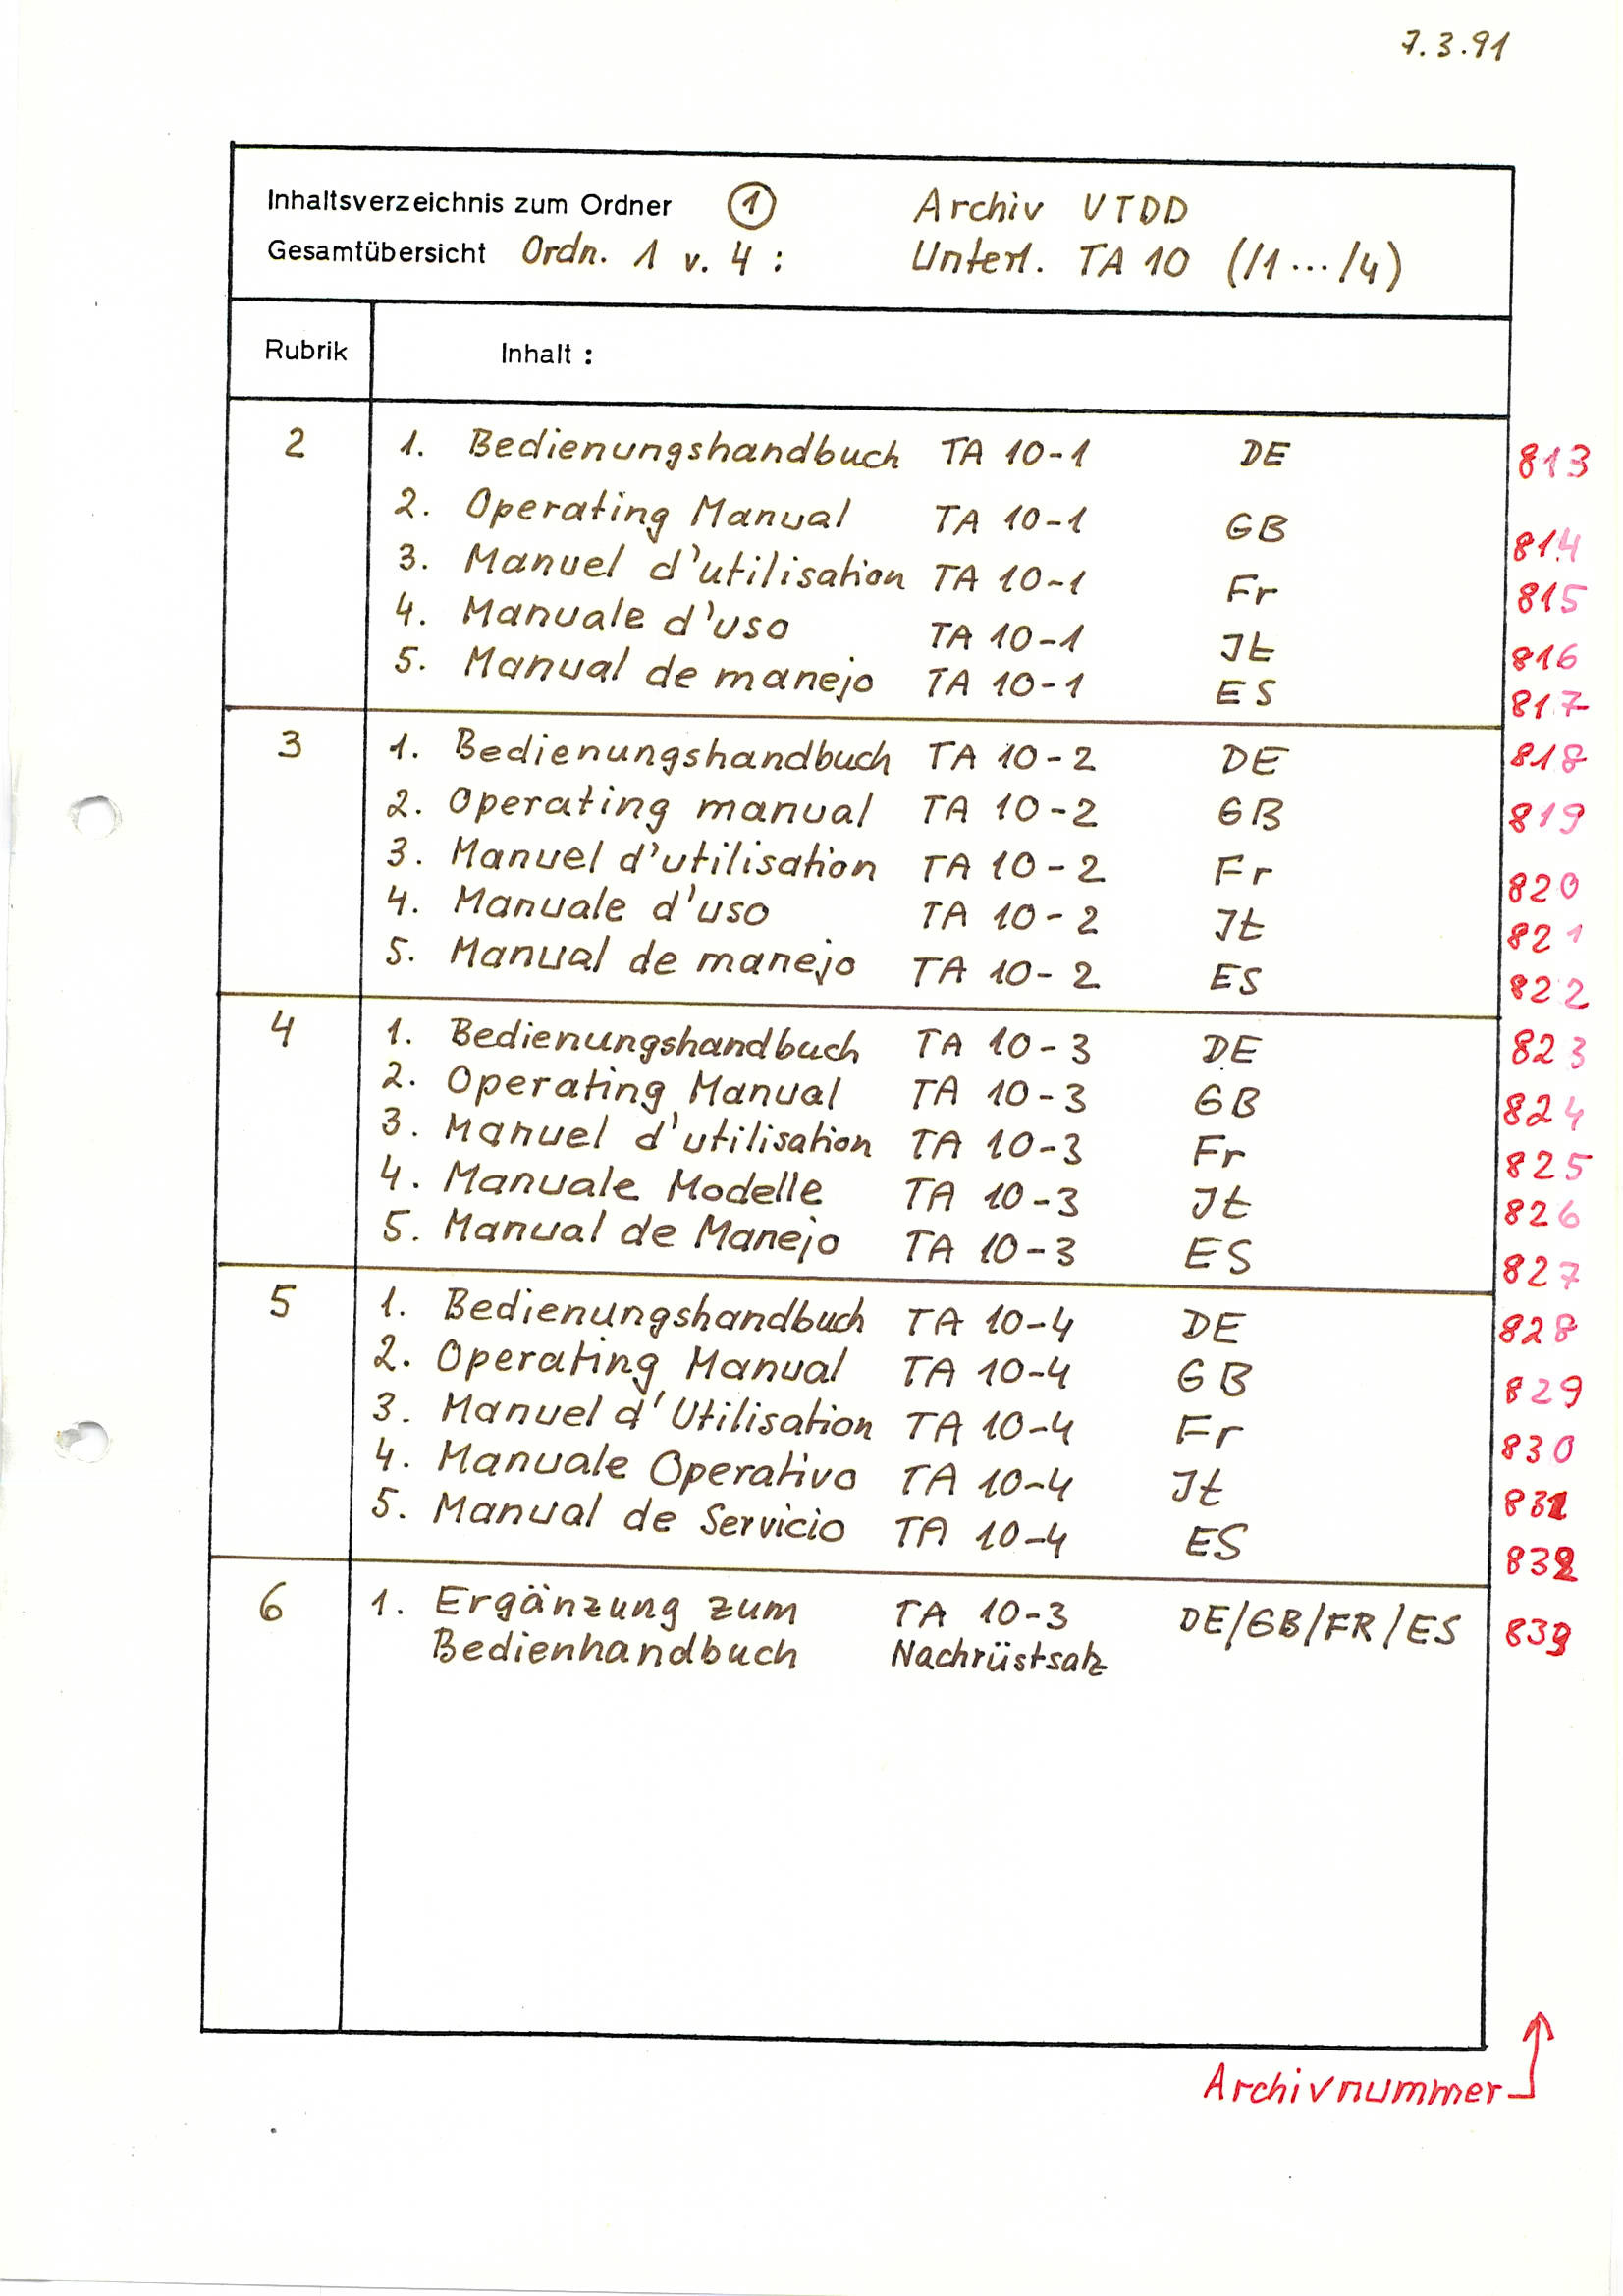 7.3.91
Inhaltsverzeichnis zum Ordner 1 Archiv VTDD
Gesamtübersicht Ordn. 1 v. 4 : Unterl. TA 10 (/1 ... /4)
Rubrik Inhalt :
2 1. Bedienungshandbuch TA 10-1 DE 813
2. Operating Manual TA 10-1 GB 814
3. Manuel d'utilisation TA 10-1 Fr 815
4. Manuale d'uso TA 10-1 It 816
5. Manual de manejo TA 10-1 ES 817
3 1. Bedienungshandbuch TA 10-2 DE 818
2. Operating manual TA 10-2 GB 819
3. Manuel d'utilisation TA 10-2 Fr 820
4. Manuale d'uso TA 10-2 It 821
5. Manual de manejo TA 10-2 ES 822
4 1. Bedienungshandbuch TA 10-3 DE 823
2. Operating Manual TA 10-3 GB 824
3. Manuel d'utilisation TA 10-3 Fr 825
4. Manuale Modelle TA 10-3 It 826
5. Manual de Manejo TA 10-3 ES 827
5 1. Bedienungshandbuch TA 10-4 DE 828
2. Operating Manual TA 10-4 GB 829
3. Manuel d'Utilisation TA 10-4 Fr 830
4. Manuale Operativo TA 10-4 It 831
5. Manual de Servicio TA 10-4 ES 832
6 1. Ergänzung zum TA 10-3 DE/GB/FR/ES 833
Bedienhandbuch Nachrüstsatz
Archivnummer